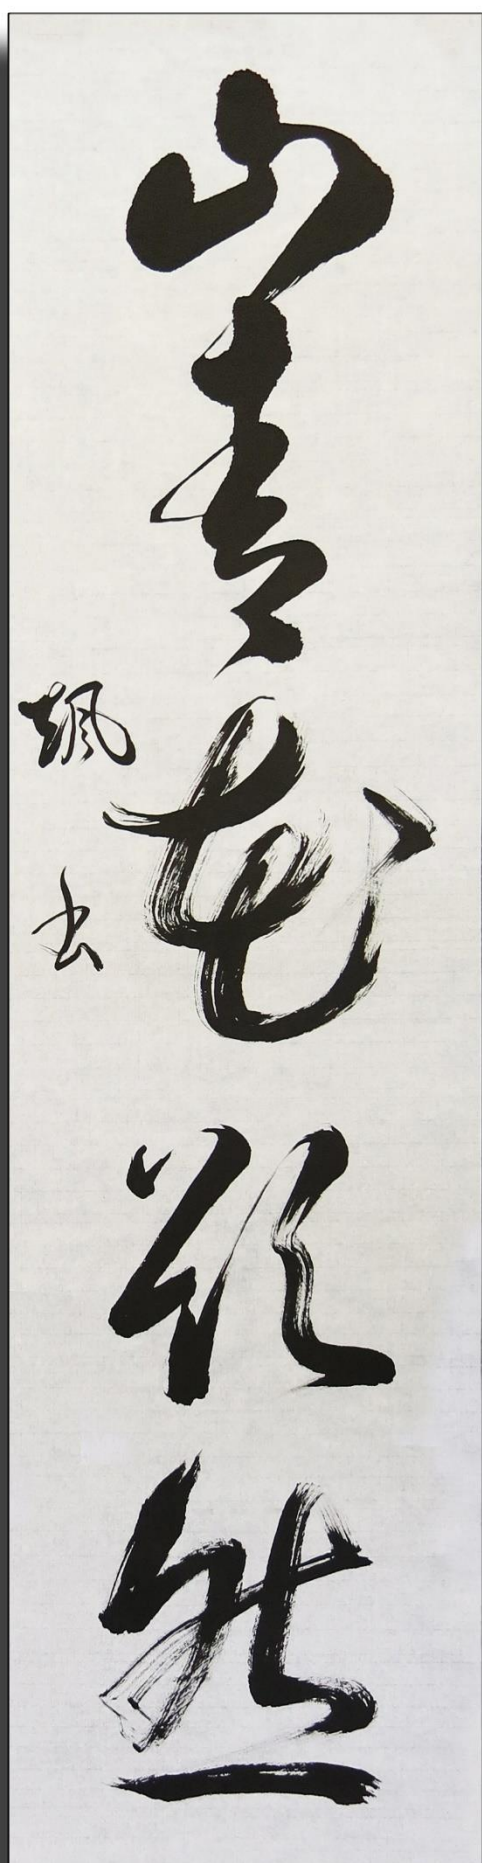 山青花欲然
颯書